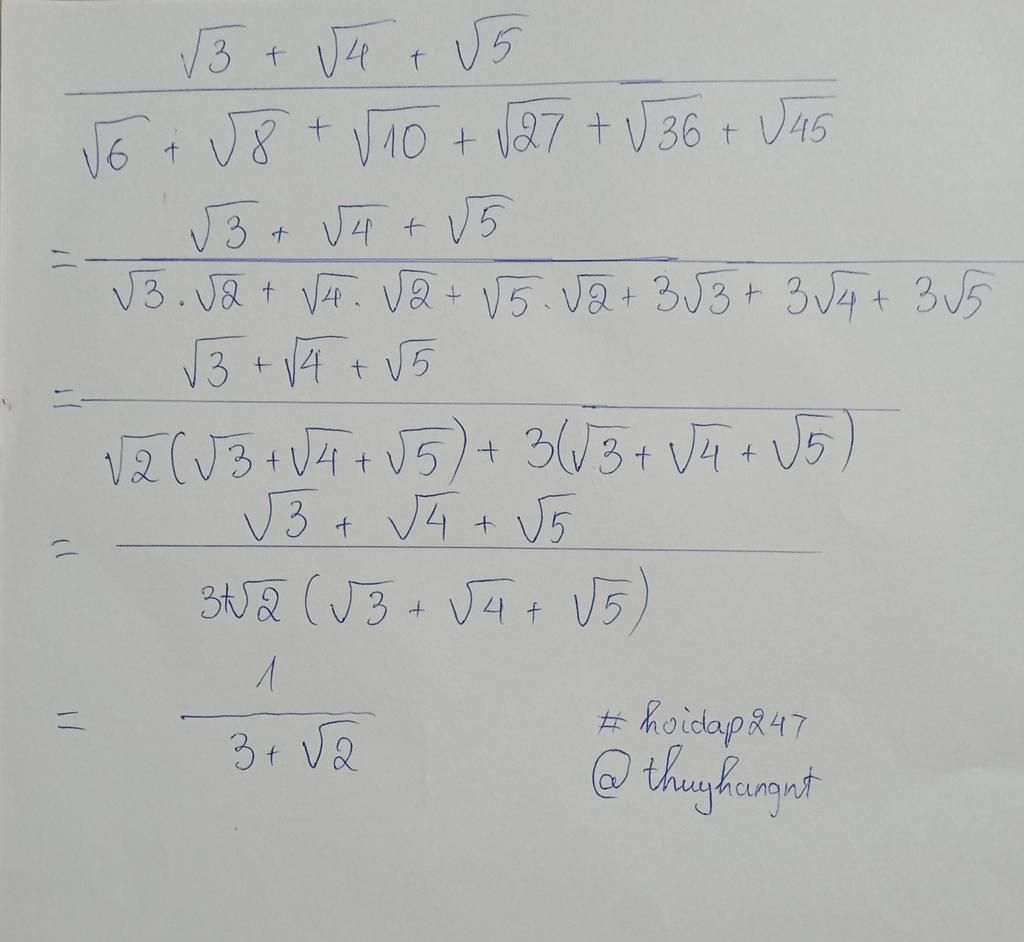 √3 + √4 + √5
√6 + √8 + √10 + √27 + √36 + √45
= √3 + √4 + √5
√3 . √2 + √4 . √2 + √5 . √2 + 3√3 + 3√4 + 3√5
= √3 + √4 + √5
√2 (√3 + √4 + √5) + 3(√3 + √4 + √5)
= √3 + √4 + √5
3+√2 (√3 + √4 + √5)
= 1
3 + √2
# hoidap247
@ thuyhangnt